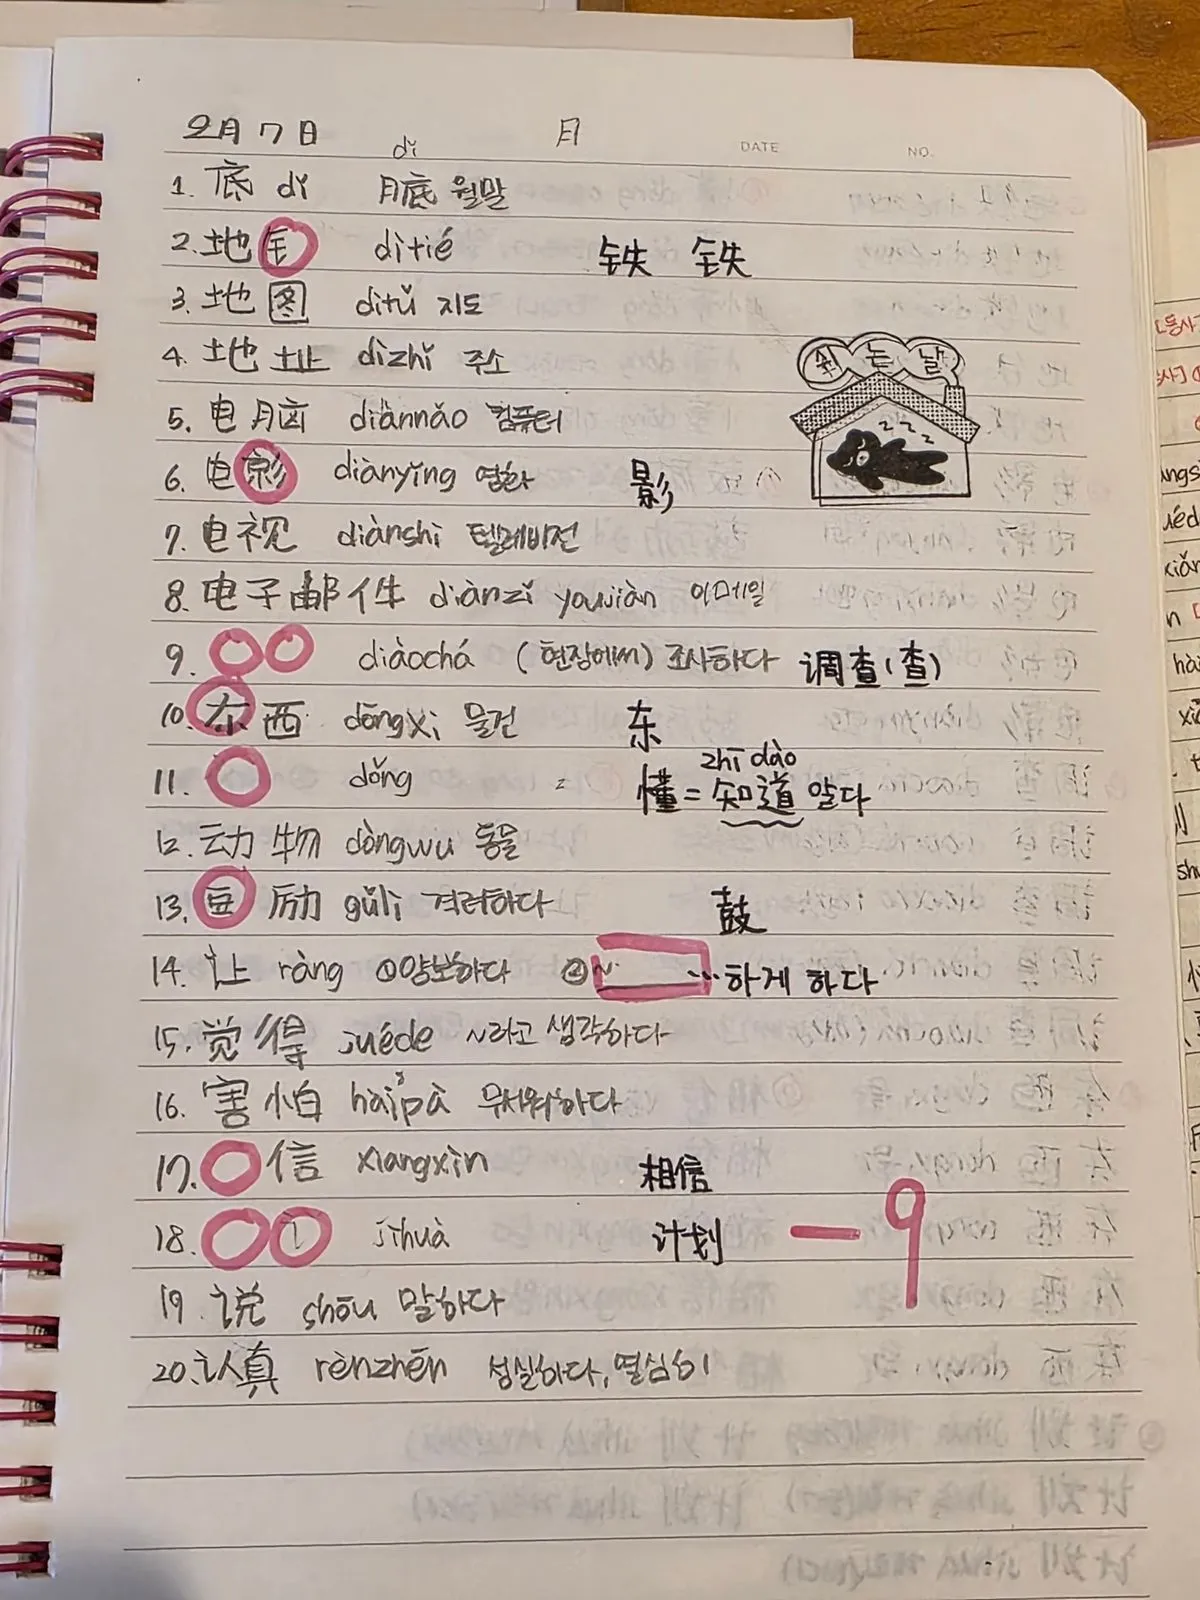 2月7日 月 DATE NO.
dǐ
1. 底 dǐ 月底 월말
2. 地钅 dìtiě 铁 铁
3. 地图 dìtú 지도
4. 地址 dìzhǐ 주소
쉬는 날
5. 电脑 diànnǎo 컴퓨터
zzzz
6. 电影 diànyǐng 영화 影
7. 电视 diànshì 텔레비전
8. 电子邮件 diànzǐ yóujiàn 이메일
9. diàochá (현장에서) 조사하다 调查(查)
10. 东西 dōngxi 물건 东
zhī dào
11. dǒng = 懂=知道 알다
12. 动物 dòngwu 동물
13. 励 gǔlì 격려하다 鼓
14. 让 ràng ①양보하다 ②~ ...하게 하다
15. 觉得 juéde ~라고 생각하다
16. 害怕 hàipà 무서워하다
17. 信 xiangxìn 相信
18. jìhuà 计划 -9
19. 说 shōu 말하다
20. 认真 rènzhēn 성실하다, 열심히